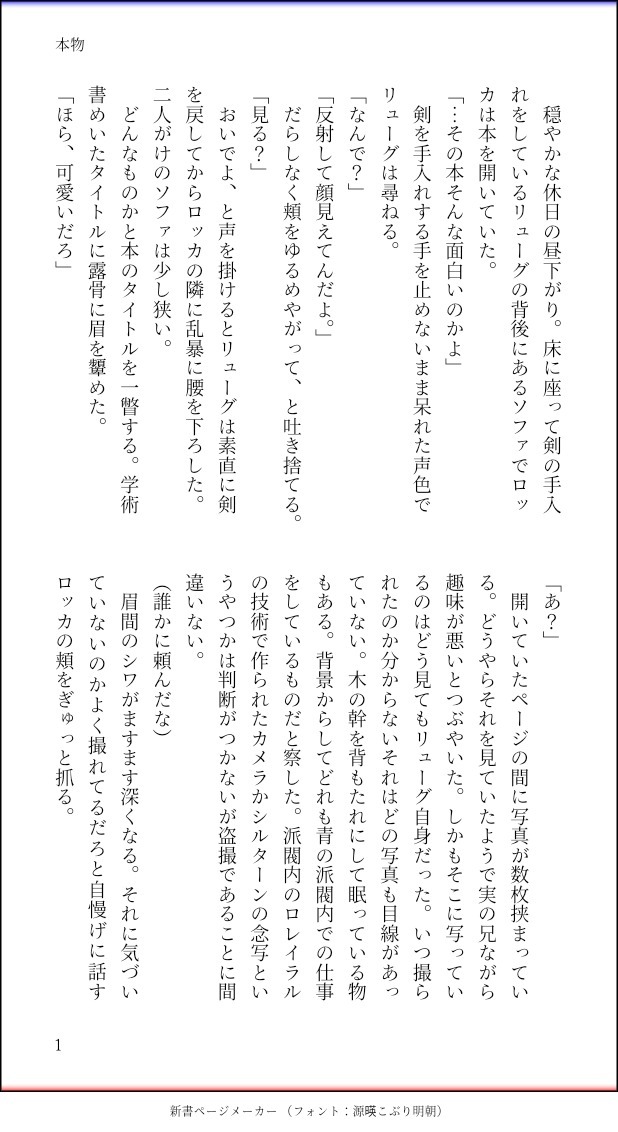 本物
　穏やかな休日の昼下がり。床に座って剣の手入
れをしているリューグの背後にあるソファでロッ
カは本を開いていた。
「…その本そんな面白いのかよ」
　剣を手入れする手を止めないまま呆れた声色で
リューグは尋ねる。
「なんで？」
「反射して顔見えてんだよ。」
　だらしなく頬をゆるめやがって、と吐き捨てる。
「見る？」
　おいでよ、と声を掛けるとリューグは素直に剣
を戻してからロッカの隣に乱暴に腰を下ろした。
二人がけのソファは少し狭い。
　どんなものかと本のタイトルを一瞥する。学術
書めいたタイトルに露骨に眉を顰めた。
「ほら、可愛いだろ」
「あ？」
　開いていたページの間に写真が数枚挟まってい
る。どうやらそれを見ていたようで実の兄ながら
趣味が悪いとつぶやいた。しかもそこに写ってい
るのはどう見てもリューグ自身だった。いつ撮ら
れたのか分からないそれはどの写真も目線があっ
ていない。木の幹を背もたれにして眠っている物
もある。背景からしてどれも青の派閥内での仕事
をしているものだと察した。派閥内のロレイラル
の技術で作られたカメラかシルターンの念写とい
うやつかは判断がつかないが盗撮であることに間
違いない。
（誰かに頼んだな）
　眉間のシワがますます深くなる。それに気づい
ていないのかよく撮れてるだろと自慢げに話す
ロッカの頬をぎゅっと抓る。
1
新書ページメーカー（フォント：源暎こぶり明朝）